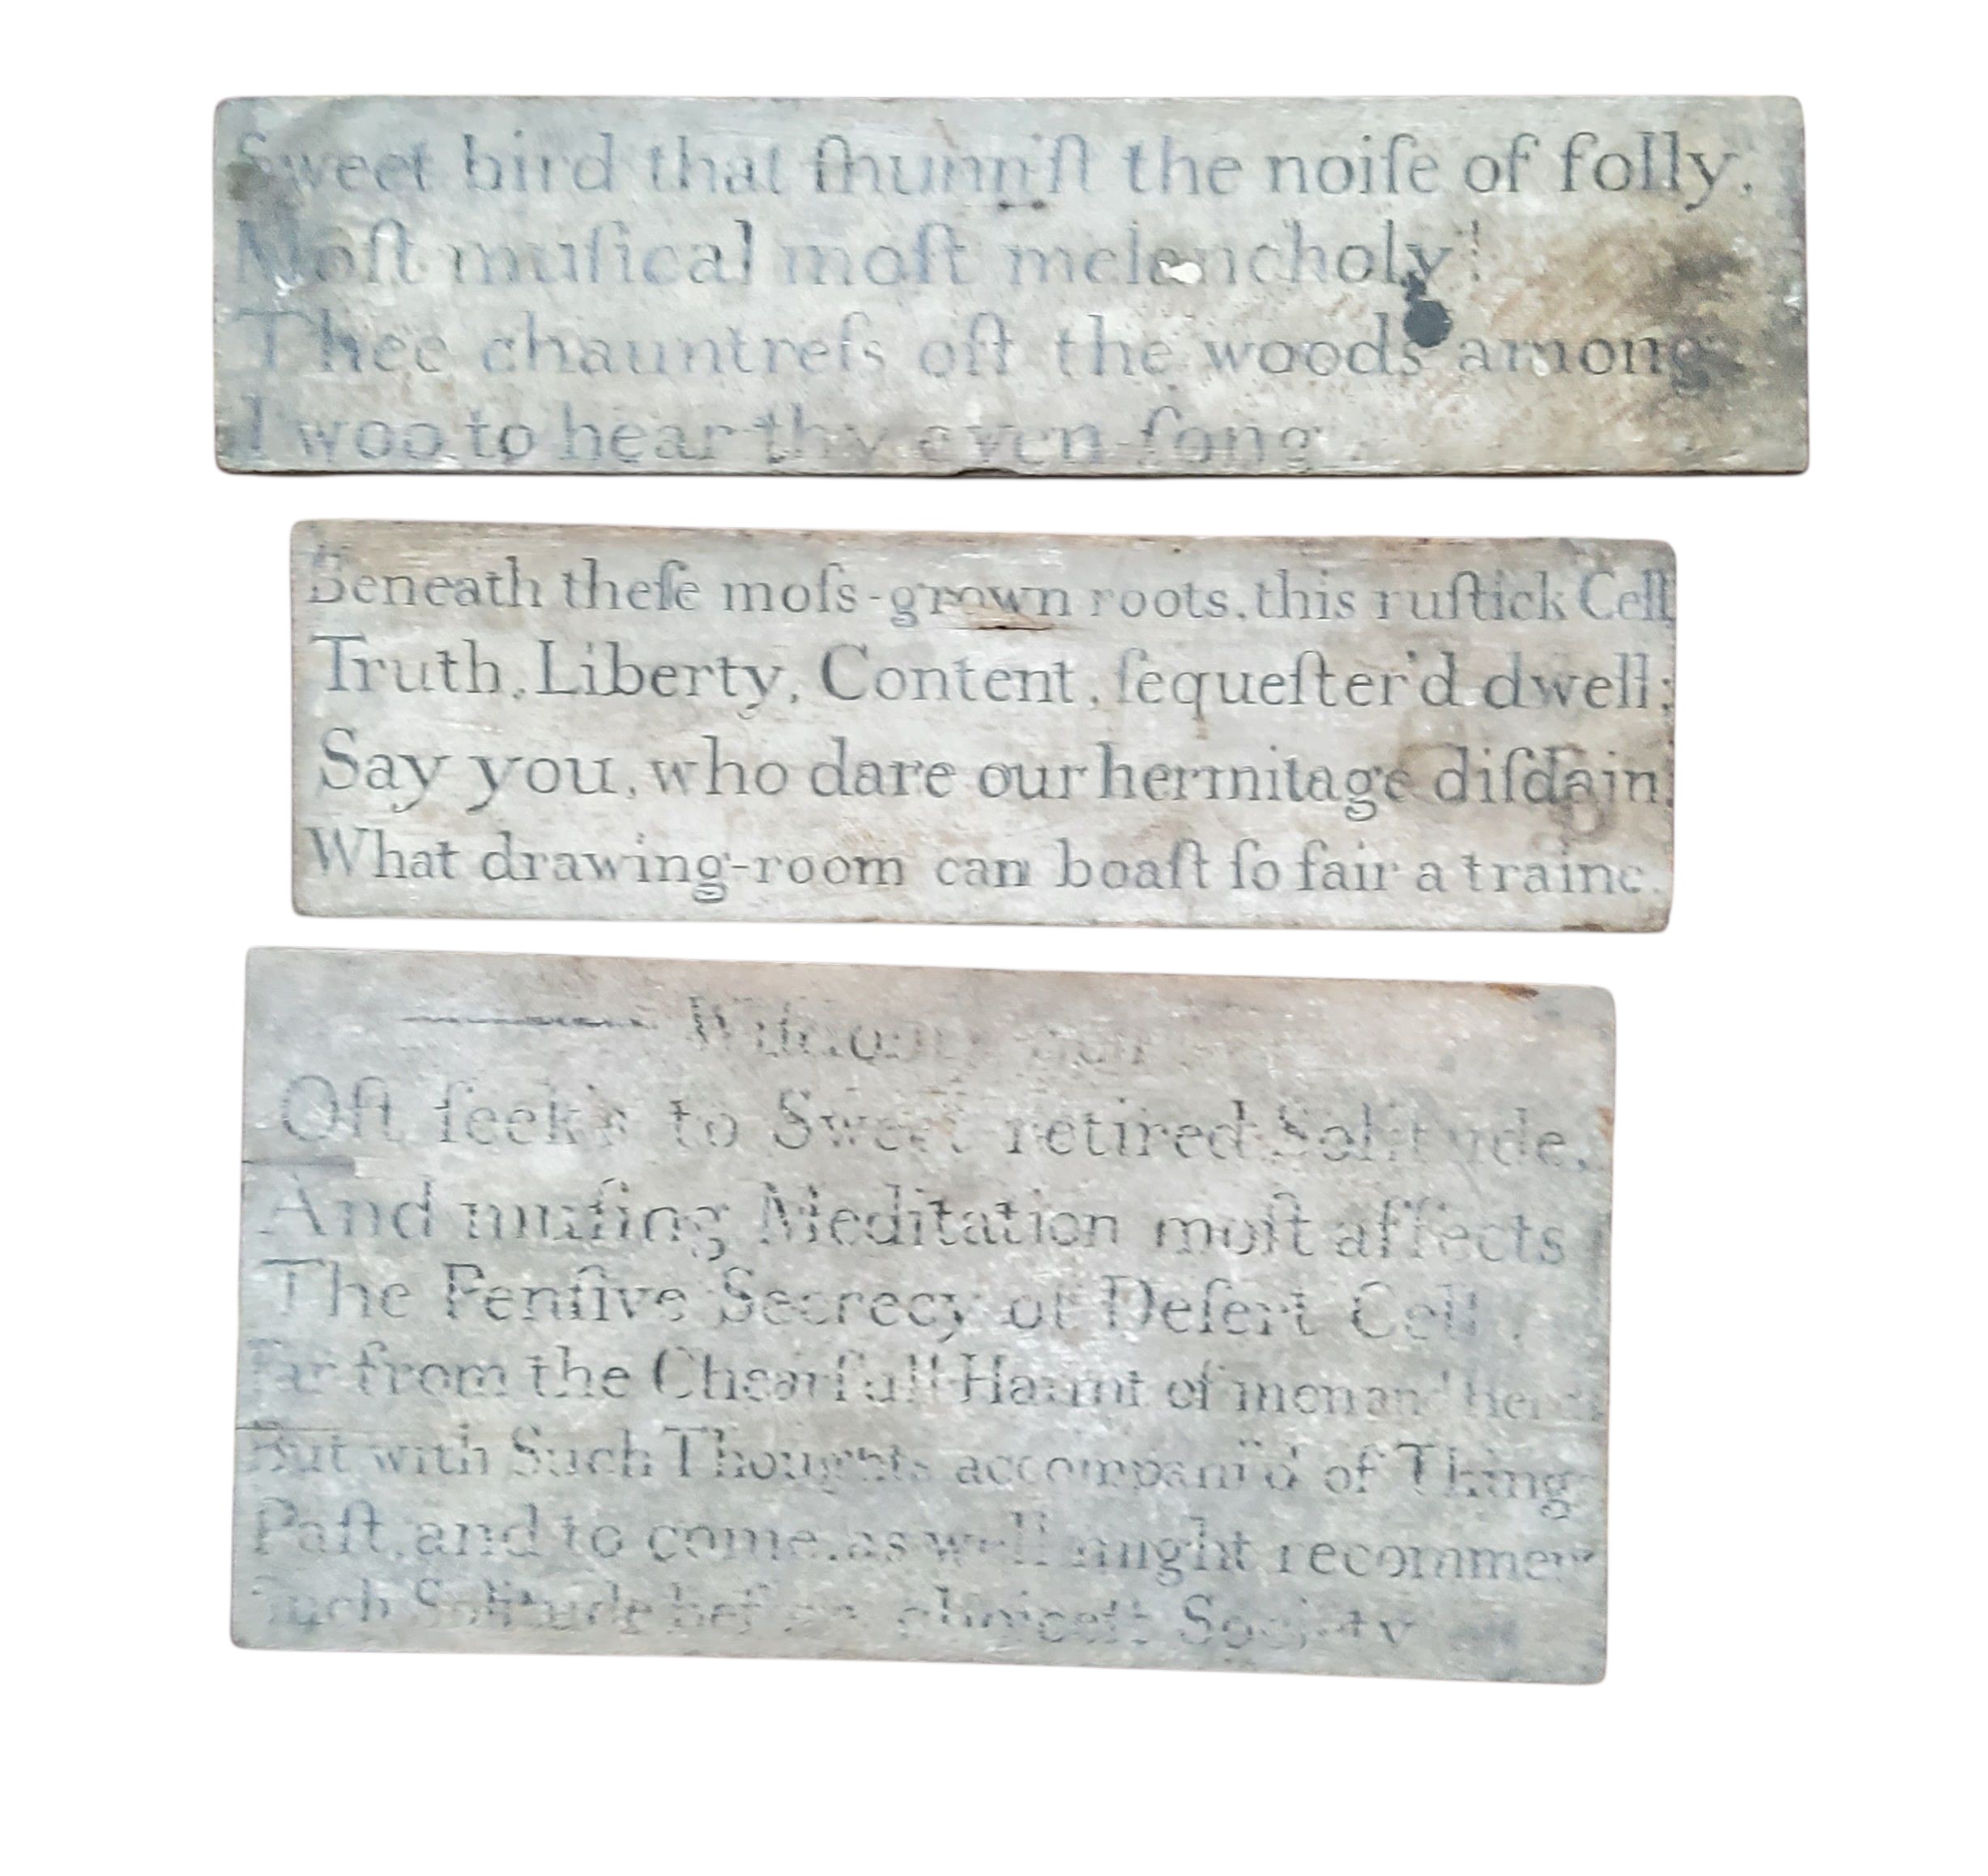 Sweet bird that ſhunn'ſt the noiſe of folly.
Moſt muſical moſt melancholy!
Thee chauntreſs oft the woods among
I woo to hear thy even ſong
Beneath theſe moſs-grown roots, this ruſtick Cell
Truth, Liberty, Content, ſequeſter'd dwell;
Say you, who dare our hermitage diſdain,
What drawing-room can boaſt ſo fair a traine.
Oft ſeek's to Sweet retired Solitude,
And muſing Meditation moſt affects
The Penſive Secrecy of Deſert Cell
Far from the Chearfull Haunt of men and
But with Such Thoughts accompani'd of Thing
Paſt, and to come, as well might recommen
Such Solitude choiceſt Society